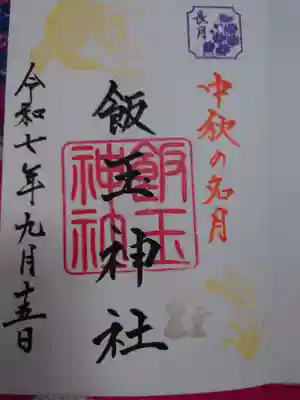 長月
中秋の名月
飯玉神社
飯玉神社
令和七年九月十五日